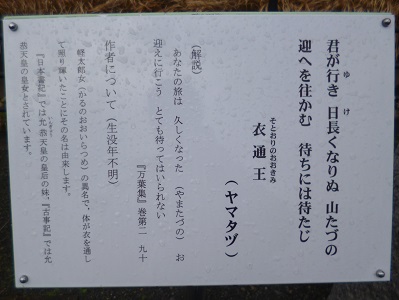 君が行き 日長くなりぬ 山たづの
ゆ け
迎へを往かむ 待ちには待たじ
そとおりのおおきみ
衣通王
(ヤマタヅ)
(解説)
あなたの旅は 久しくなった (やまたづの) お
迎えに行こう とても待ってはいられない
『万葉集』巻第二 九十
作者について(生没年不明)
軽太郎女(かるのおおいらつめ)の異名で、体が衣を通し
て照り輝いたことにその名は由来します。
『日本書紀』では允恭天皇の皇后の妹、『古事記』では允
恭天皇の皇女とされています。